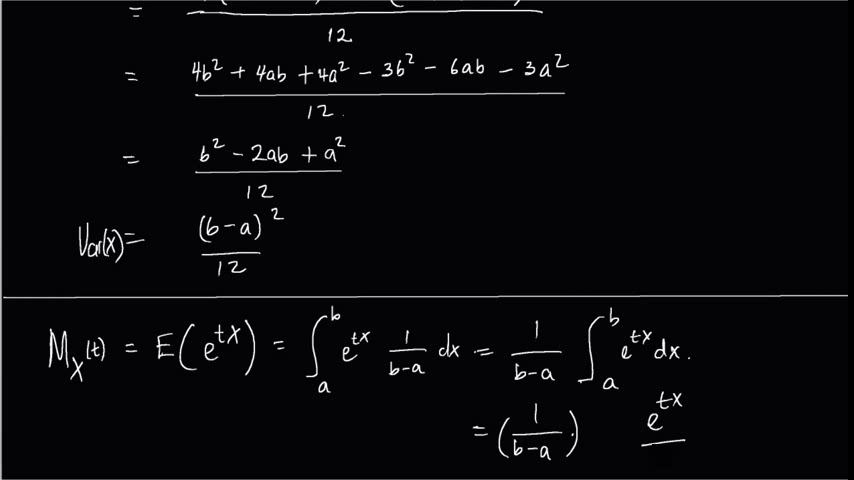 =
12
= 4b² + 4ab + 4a² - 3b² - 6ab - 3a²
12.
= b² - 2ab + a²
12
Var(x) = (b-a)²
12
M_X(t) = E(e^{tX}) = ∫_a^b e^{tx} 1/(b-a) dx = 1/(b-a) ∫_a^b e^{tx} dx.
= (1/(b-a)) · e^{tx}